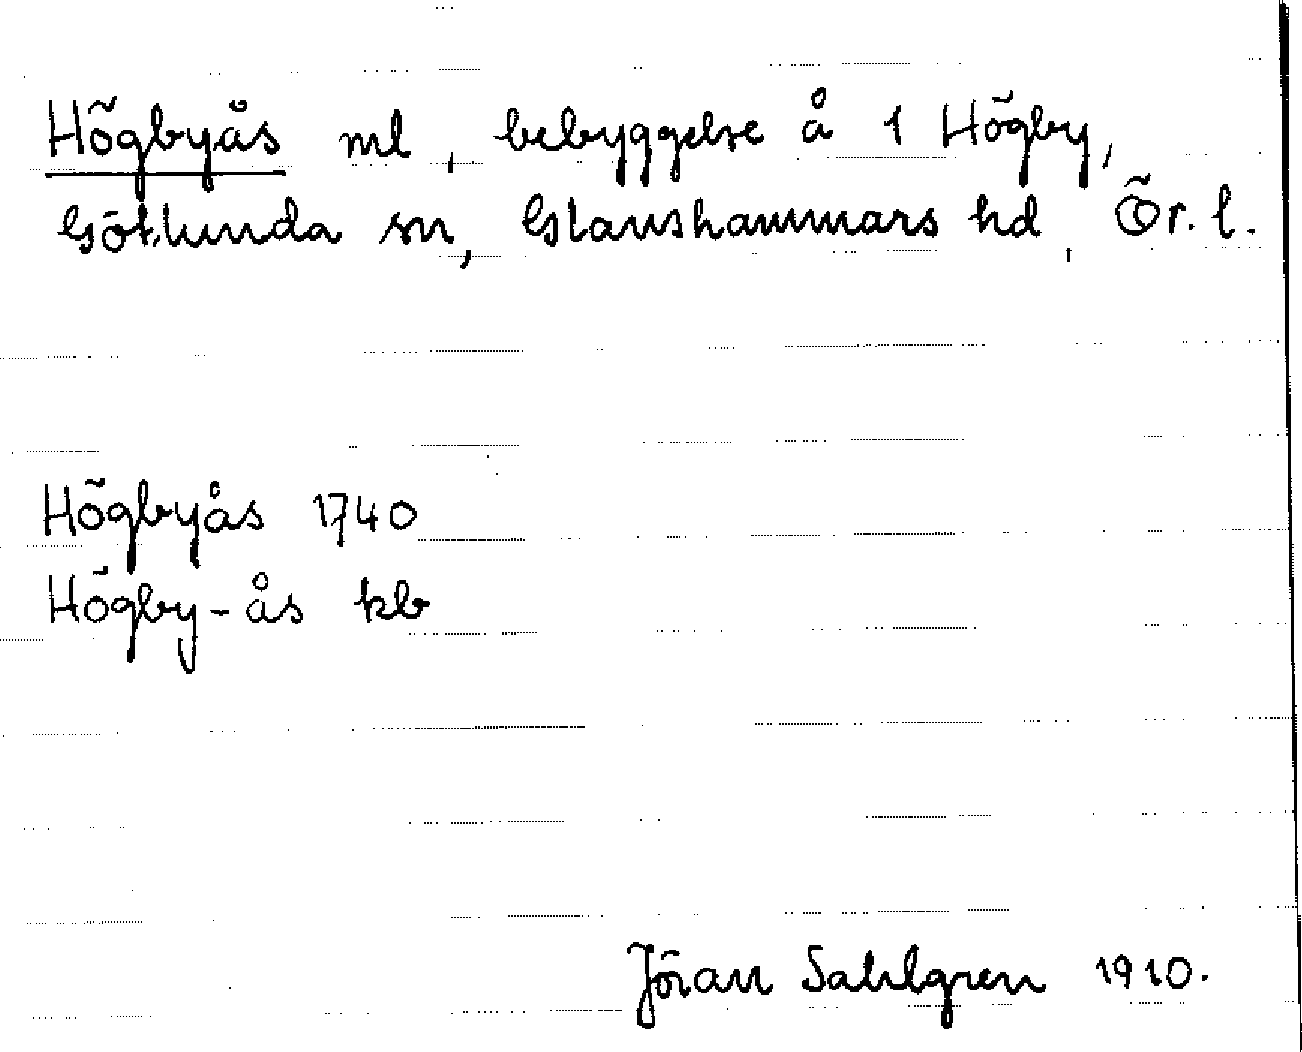 Högbyås ml, bebyggelse å 1 Högby,
Götlunda sn, Glanshammars hd, Ör. l.
Högbyås 1740
Högby-ås kb
Jöran Sahlgren 1910.